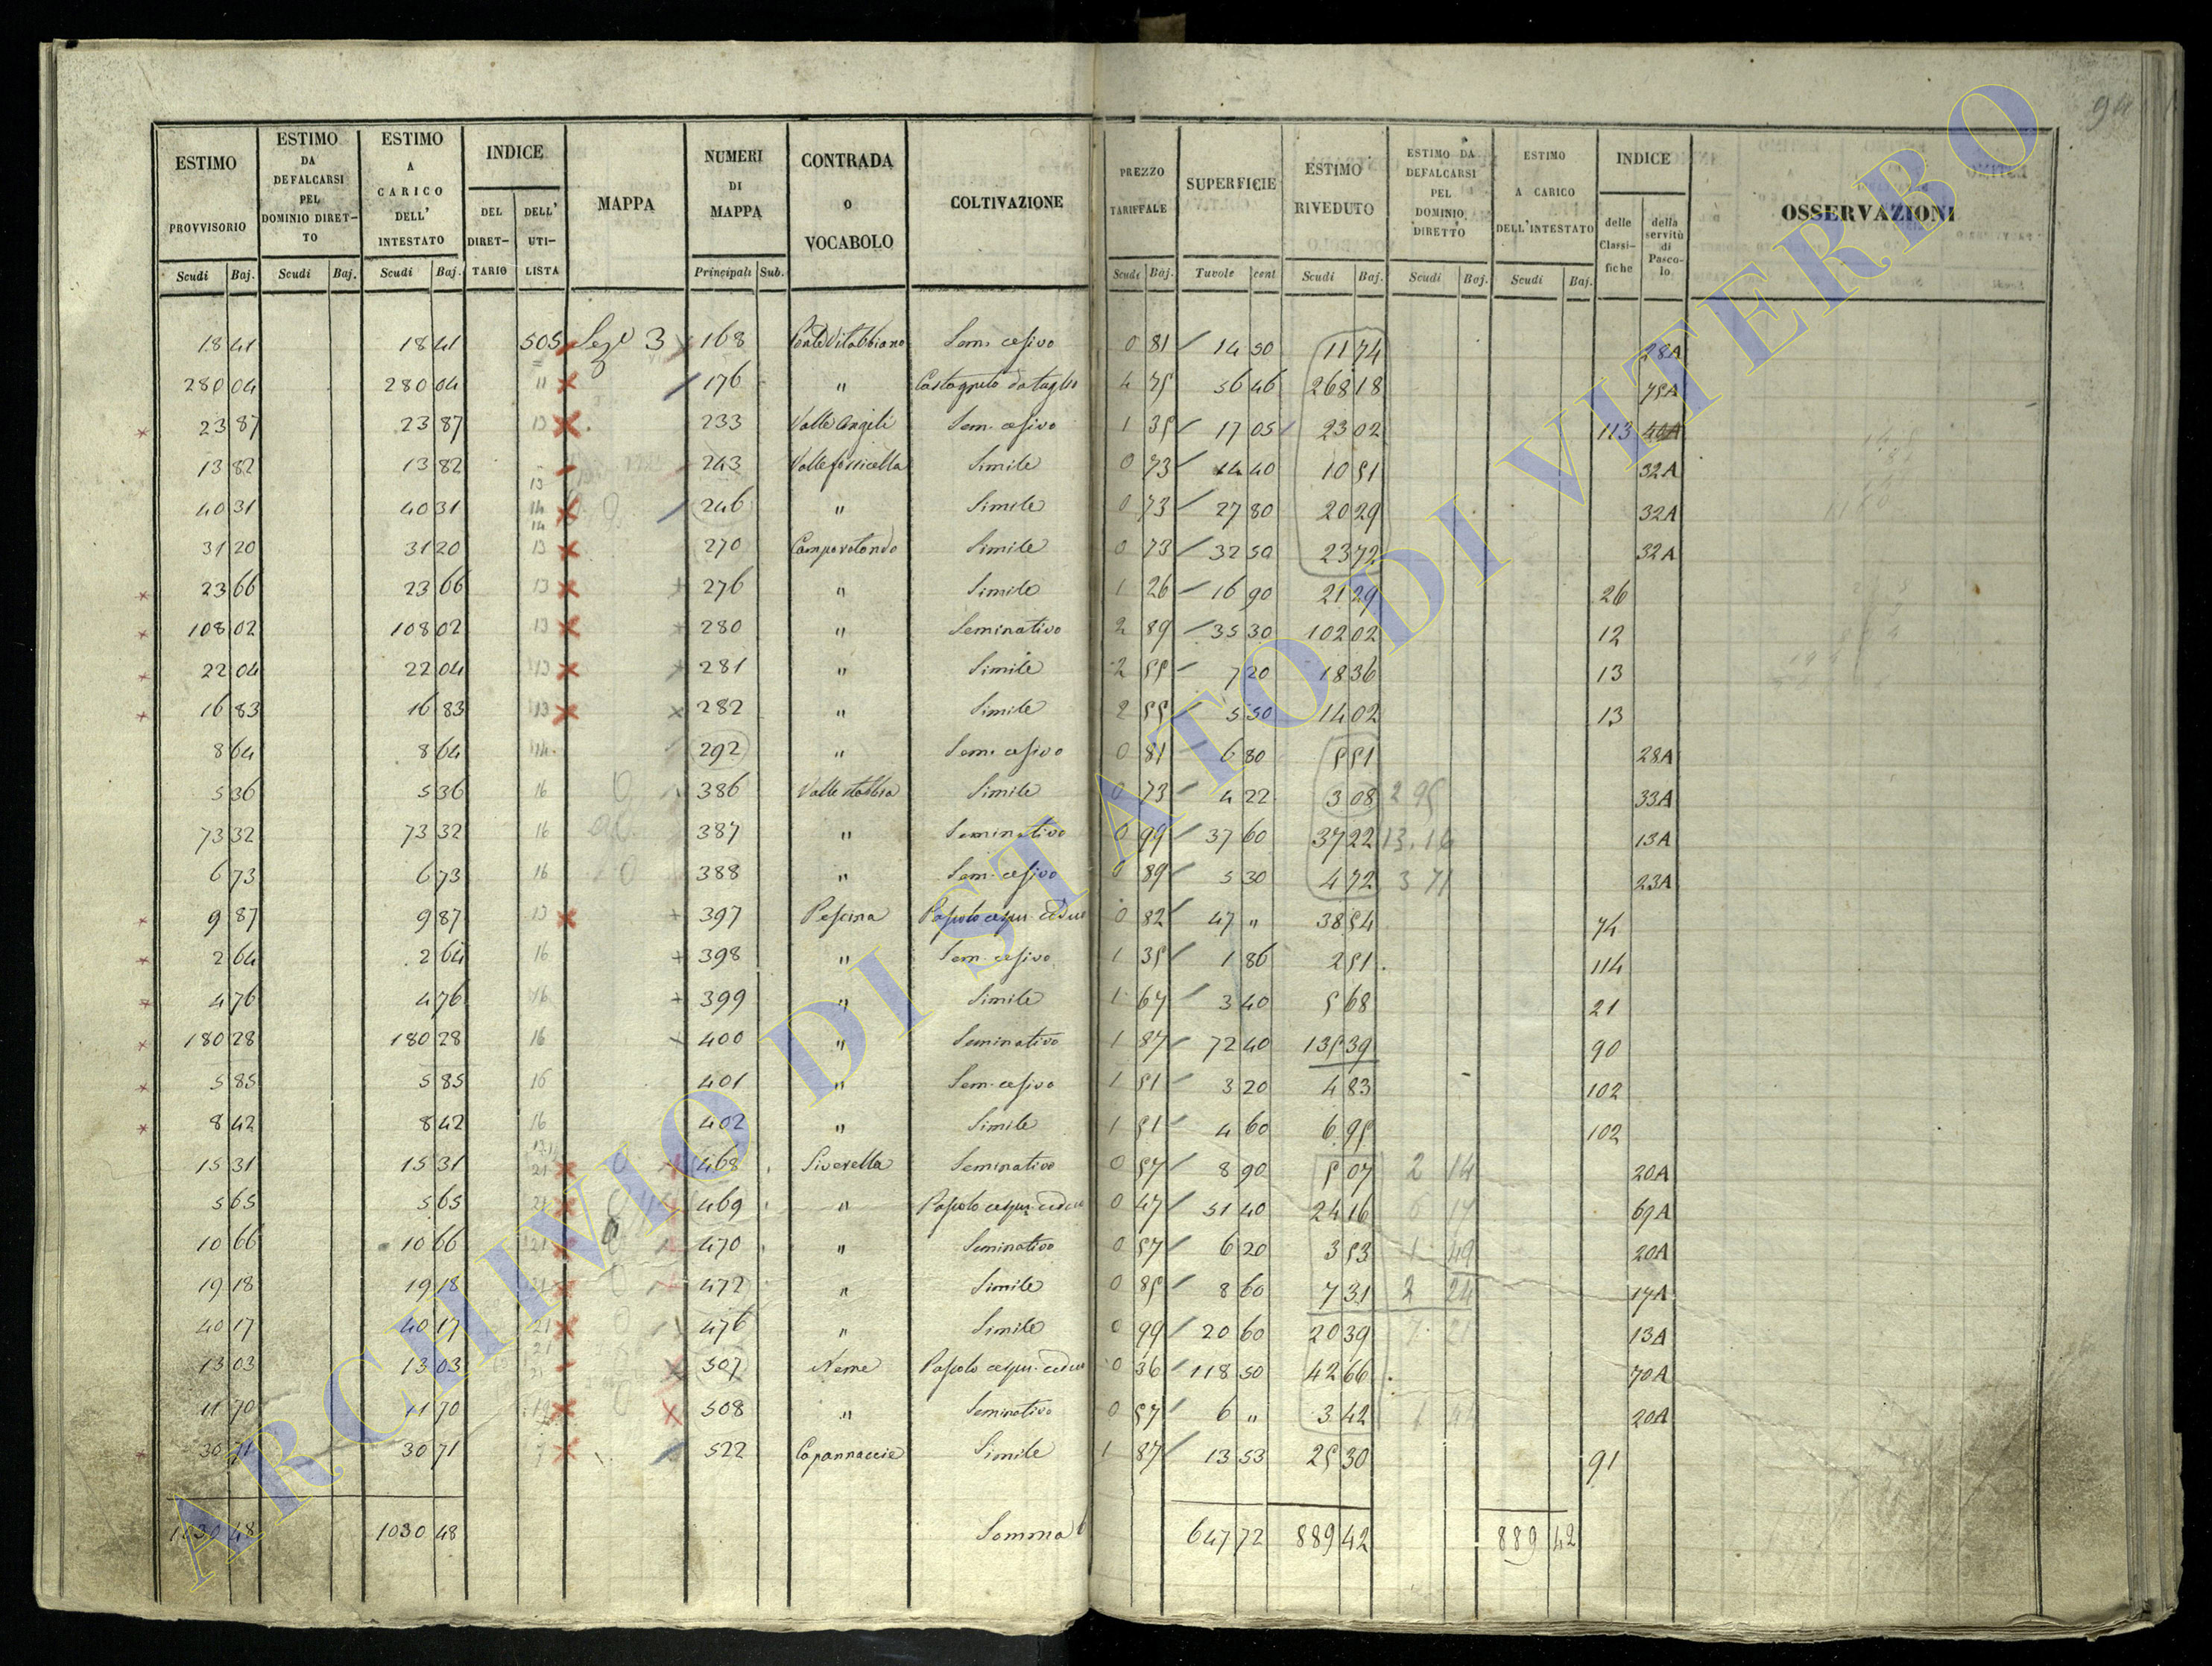 94
ESTIMO PROVVISORIO Scudi Baj. | ESTIMO DA DEFALCARSI PEL DOMINIO DIRETTO Scudi Baj. | ESTIMO A CARICO DELL' INTESTATO Scudi Baj. | INDICE DEL DIRETTARIO DELL' UTILISTA | MAPPA | NUMERI DI MAPPA Principali Sub. | CONTRADA O VOCABOLO | COLTIVAZIONE | PREZZO TARIFFALE Scudi Baj. | SUPERFICIE Tavole cent | ESTIMO RIVEDUTO Scudi Baj. | ESTIMO DA DEFALCARSI PEL DOMINIO DIRETTO Scudi Baj. | ESTIMO A CARICO DELL'INTESTATO Scudi Baj. | INDICE delle Classifiche della servitù di Pascolo | OSSERVAZIONI
18 41 18 41 505 3 168 Sem. cesivo 0 81 14 50 11 74 28A
280 04 280 04 " 176 " Castagneto da taglio 4 75 56 46 268 18 75A
23 87 23 87 13 233 Valle Angeli Sem. cesivo 1 35 17 05 23 02 113 40A
13 82 13 82 13 243 Simile 0 73 14 40 10 51 32A
40 31 40 31 14 14 246 " Simile 0 73 27 80 20 29 32A
31 20 31 20 13 270 Camporotondo Simile 0 73 32 50 23 72 32A
23 66 23 66 13 276 " Simile 1 26 16 90 21 29 26
108 02 108 02 13 280 " Seminativo 2 89 35 30 102 02 12
22 04 22 04 13 281 " Simile 2 55 7 20 18 36 13
16 83 16 83 13 282 " Simile 2 55 5 50 14 02 13
8 64 8 64 14 292 " Sem. cesivo 0 81 6 80 5 51 28A
5 36 5 36 16 386 Simile 0 73 4 22 3 08 2 95 33A
73 32 73 32 16 387 " Seminativo 0 99 37 60 37 22 13.16 13A
6 73 6 73 16 388 " Sem. cesivo 0 89 5 30 4 72 3 71 23A
9 87 9 87 13 397 Pescina Pascolo cespu. ceduo 0 82 47 " 38 54 74
2 64 2 64 16 398 " Sem. cesivo 1 35 1 86 2 51 114
4 76 4 76 16 399 " Simile 1 67 3 40 5 68 21
180 28 180 28 16 400 " Seminativo 1 87 72 40 135 39 90
5 85 5 85 16 401 " Sem. cesivo 1 51 3 20 4 83 102
8 42 8 42 16 402 " Simile 1 51 4 60 6 95 102
15 31 15 31 21 468 Piverella Seminativo 0 57 8 90 5 07 2 14 20A
5 65 5 65 21 469 " Pascolo cespu. ceduo 0 47 51 40 24 16 6 17 69A
10 66 10 66 21 470 " Seminativo 0 57 6 20 3 53 1 49 20A
19 18 19 18 21 472 " Simile 0 85 8 60 7 31 2 24 17A
40 17 40 17 21 476 " Simile 0 99 20 60 20 39 7 21 13A
13 03 13 03 21 21 507 Neme Pascolo cespu. ceduo 0 36 118 50 42 66 70A
11 70 11 70 19 508 " Seminativo 0 57 6 " 3 42 1 44 20A
30 71 30 71 522 Capannaccie Simile 1 87 13 53 25 30 91
1030 48 1030 48 Somma 647 72 889 42 889 42
ARCHIVIO DI STATO DI VITERBO